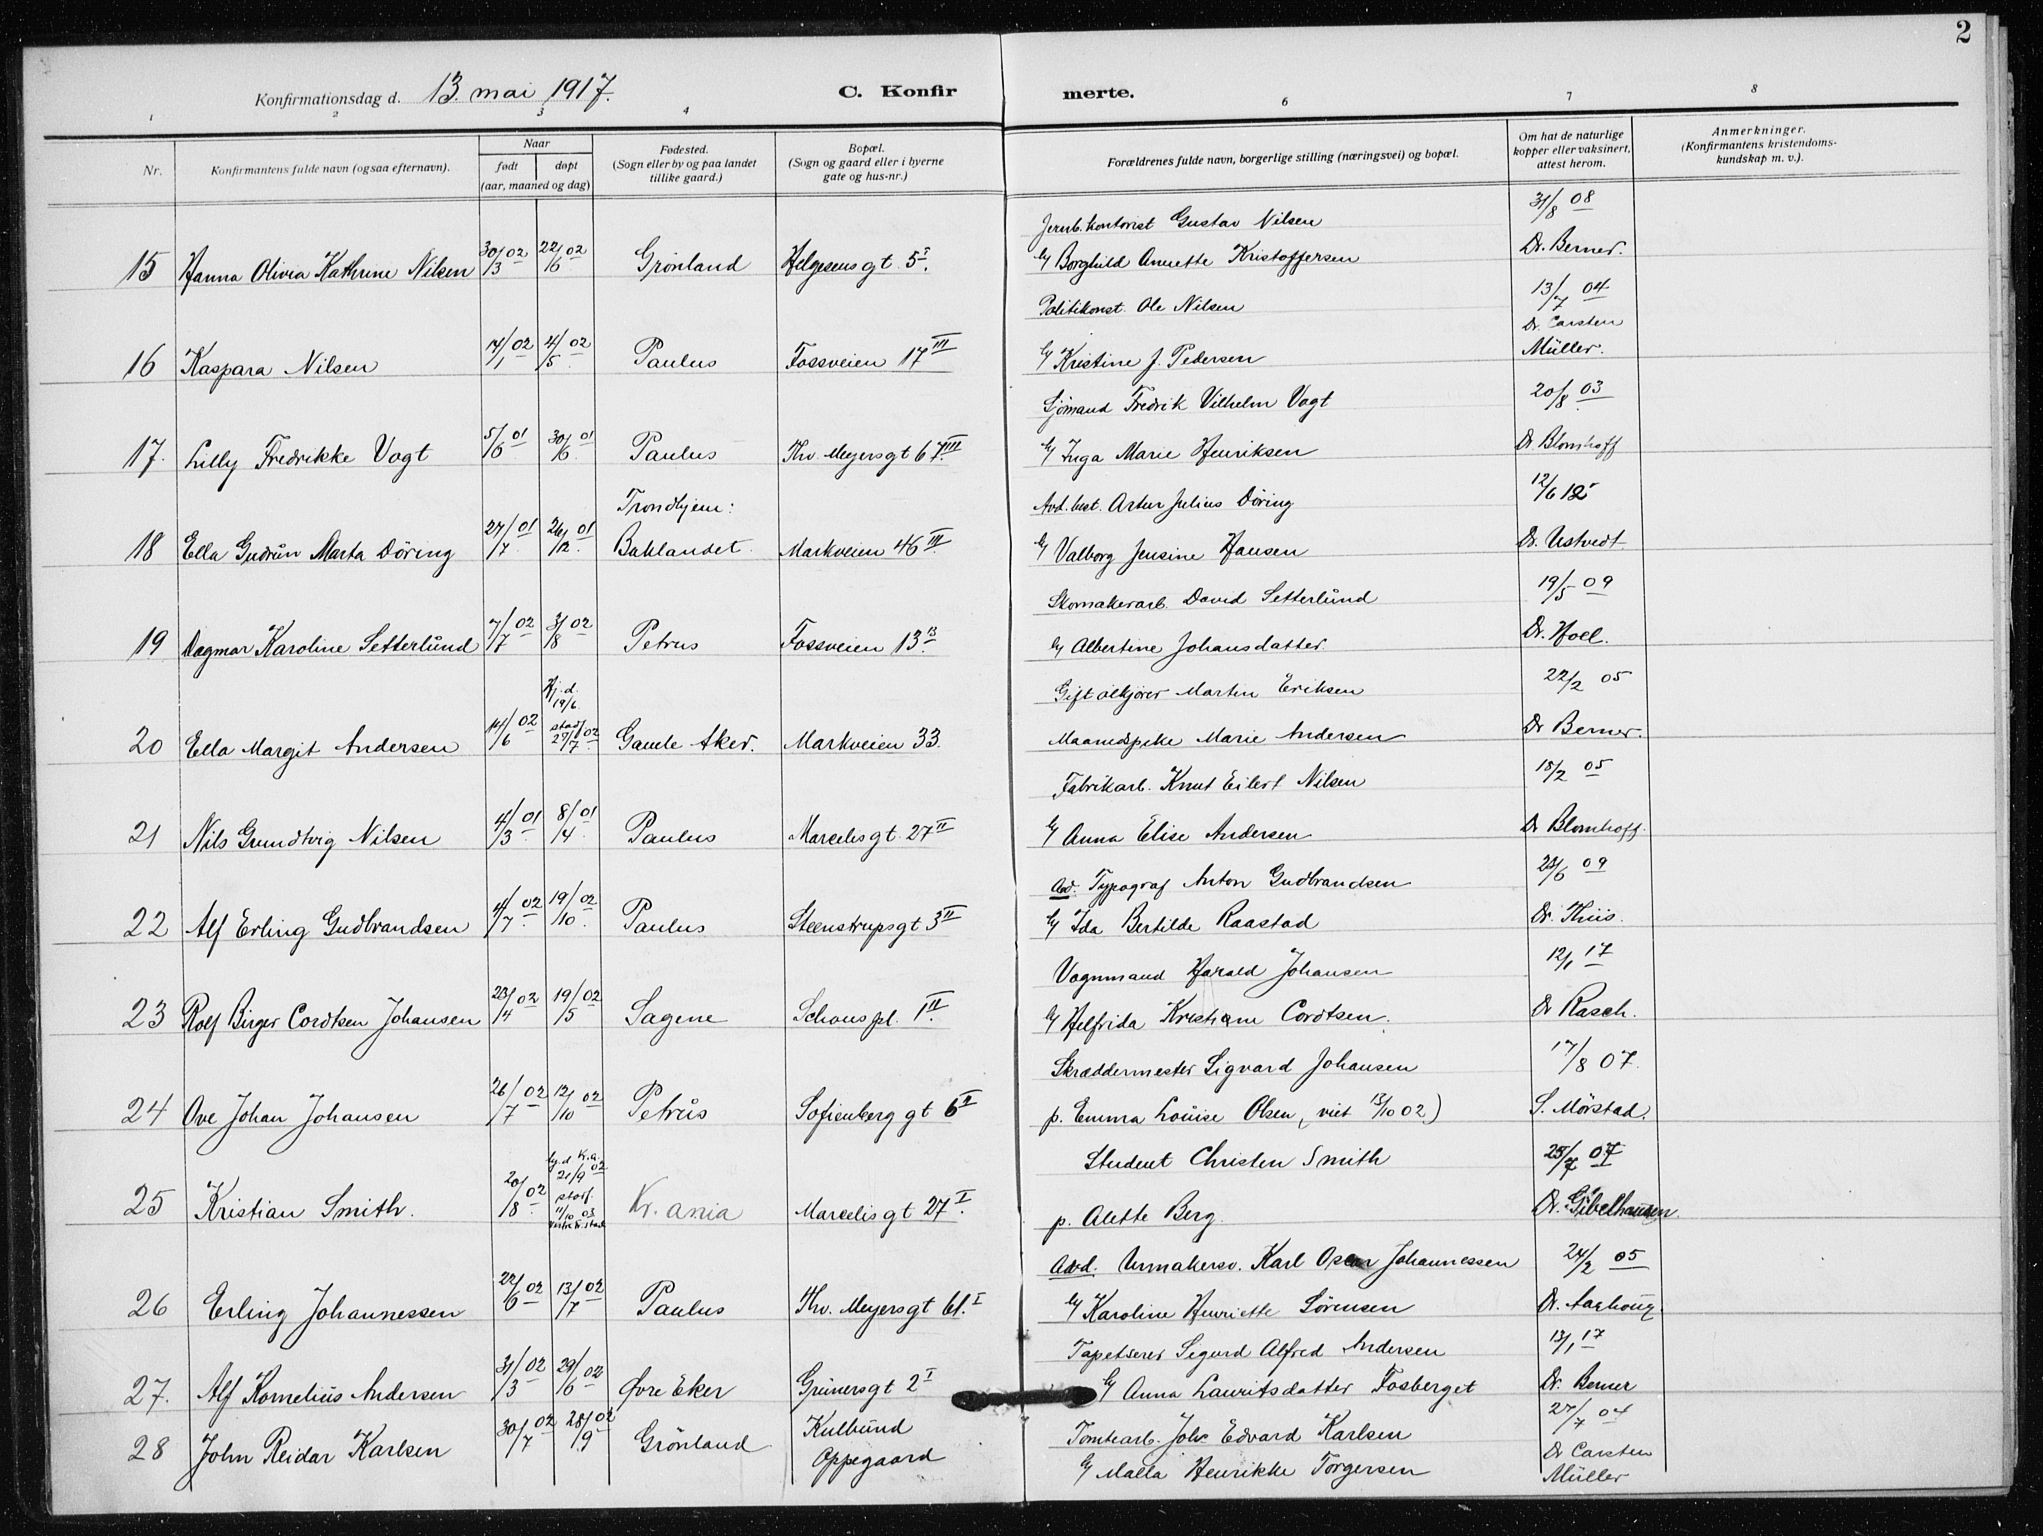 2
Konfirmationsdag d. 13. mai 1917.
C. Konfir
merte.
1 2 3 4 6 7 8
Nr.
Konfirmantens fulde navn (ogsaa efternavn).
Naar
født døpt
(aar, maaned og dag)
Fødested.
(Sogn eller by og paa landet
tillike gaard.)
Bopæl.
(Sogn og gaard eller i byerne
gate og hus-nr.)
Forældrenes fulde navn, borgerlige stilling (næringsvei) og bopæl.
Om hat de naturlige
kopper eller vaksinert,
attest herom.
Anmerkninger.
(Konfirmantens kristendoms-
kundskap m. v.).
Jernb. kontorist Gustav Nilsen 31/8 08
15 Hanna Olivia Kathrine Nilsen 30/3 02 22/6 02 Grönland Helgesens gt 5 I. Borghild Annette Kristoffersen Dr. Berner.
Politikonst. Ole Nilsen 13/7 04
Dr. Carsten
16 Kaspara Nilsen 14/1 02 4/5 02 Paulus Fossveien 17 III Kristine J. Pedersen Müller.
Sjömand Fredrik Vilhelm Vogt 20/8 03
17. Lilly Fredrikke Vogt 5/6 01 30/6 01 Paulus Thv. Meyersgt 67 III Inga Marie Henriksen Dr Blomhoff
Trondhjem: Avd. best. Artur Julius Döring 12/6 12
18 Ella Gudrun Marta Döring 27/7 01 26/12 01 Baklandet Markveien 46 III Valborg Jensine Hansen Dr. Ustvedt
Skomakerarb. David Setterlund 19/5 09
19 Dagmar Karoline Setterlund 7/7 02 31/8 02 Petrus Fossveien 13 B Albertine Johansdatter. Dr. Hoel.
Hj. d.
19/6
Gift ölkjörer Martin Eriksen 22/2 05
20 Ella Margit Andersen 14/6 02 stadf 27/7 02 Gamle Aker. Markveien 33. Maanedspike Marie Andersen Dr Berner.
Fabrikarb. Knut Eilert Nilsen 18/2 05
21 Nils Grundtvig Nilsen 4/3 01 8/4 01 Paulus Marcelisgt 27 II Anna Elise Andersen Dr Blomhoff.
Typograf Anton Gudbrandsen 23/6 09
22 Alf Erling Gudbrandsen 4/7 02 19/10 02 Paulus Steenstrupsgt 3 II Ida Bertilde Raastad Dr. Thiis.
Vognmand Harald Johansen 12/1 17
23 Rolf Birger Cordtsen Johansen 23/4 02 19/5 02 Sagene Schous pl. 1 III Helfrida Kristiane Cordtsen. Dr Rasch.
Skræddermester Sigvard Johansen 17/8 07.
24 Ove Johan Johansen 26/7 02 12/10 02 Petrus Sofienberg gt 6 I p. Emma Louise Olsen, (viet 13/10 02) S. Mörstad.
Student Christen Smith 25/7 07
25 Kristian Smith. 20/8 02 21/9 02 stadf. 11/10 03 Kr.ania Marcelisgt 27 I. p. Alette Berg. Dr. Gibelhausen.
Avd. Urmakersv. Karl Oscar Johannessen 24/2 05
26 Erling Johannessen 22/6 02 13/7 02 Paulus Thv. Meyersgt 61. I Karoline Henriette Sörensen Dr. Aarhoug
Tapetserer Sigurd Alfred Andersen 13/1 17
27. Alf Kornelius Andersen 31/3 02 29/6 02 Øvre Eker Grünersgt 2 I Anna Lauritsdatter Fosberget Dr. Berner
Kulbund Tomtearb. Joh. Edvard Karlsen 27/7 04
28 John Reidar Karlsen 30/7 02 28/9 02 Grönland Oppegaard Malla Henrikke Torgersen Dr Carsten
Müller